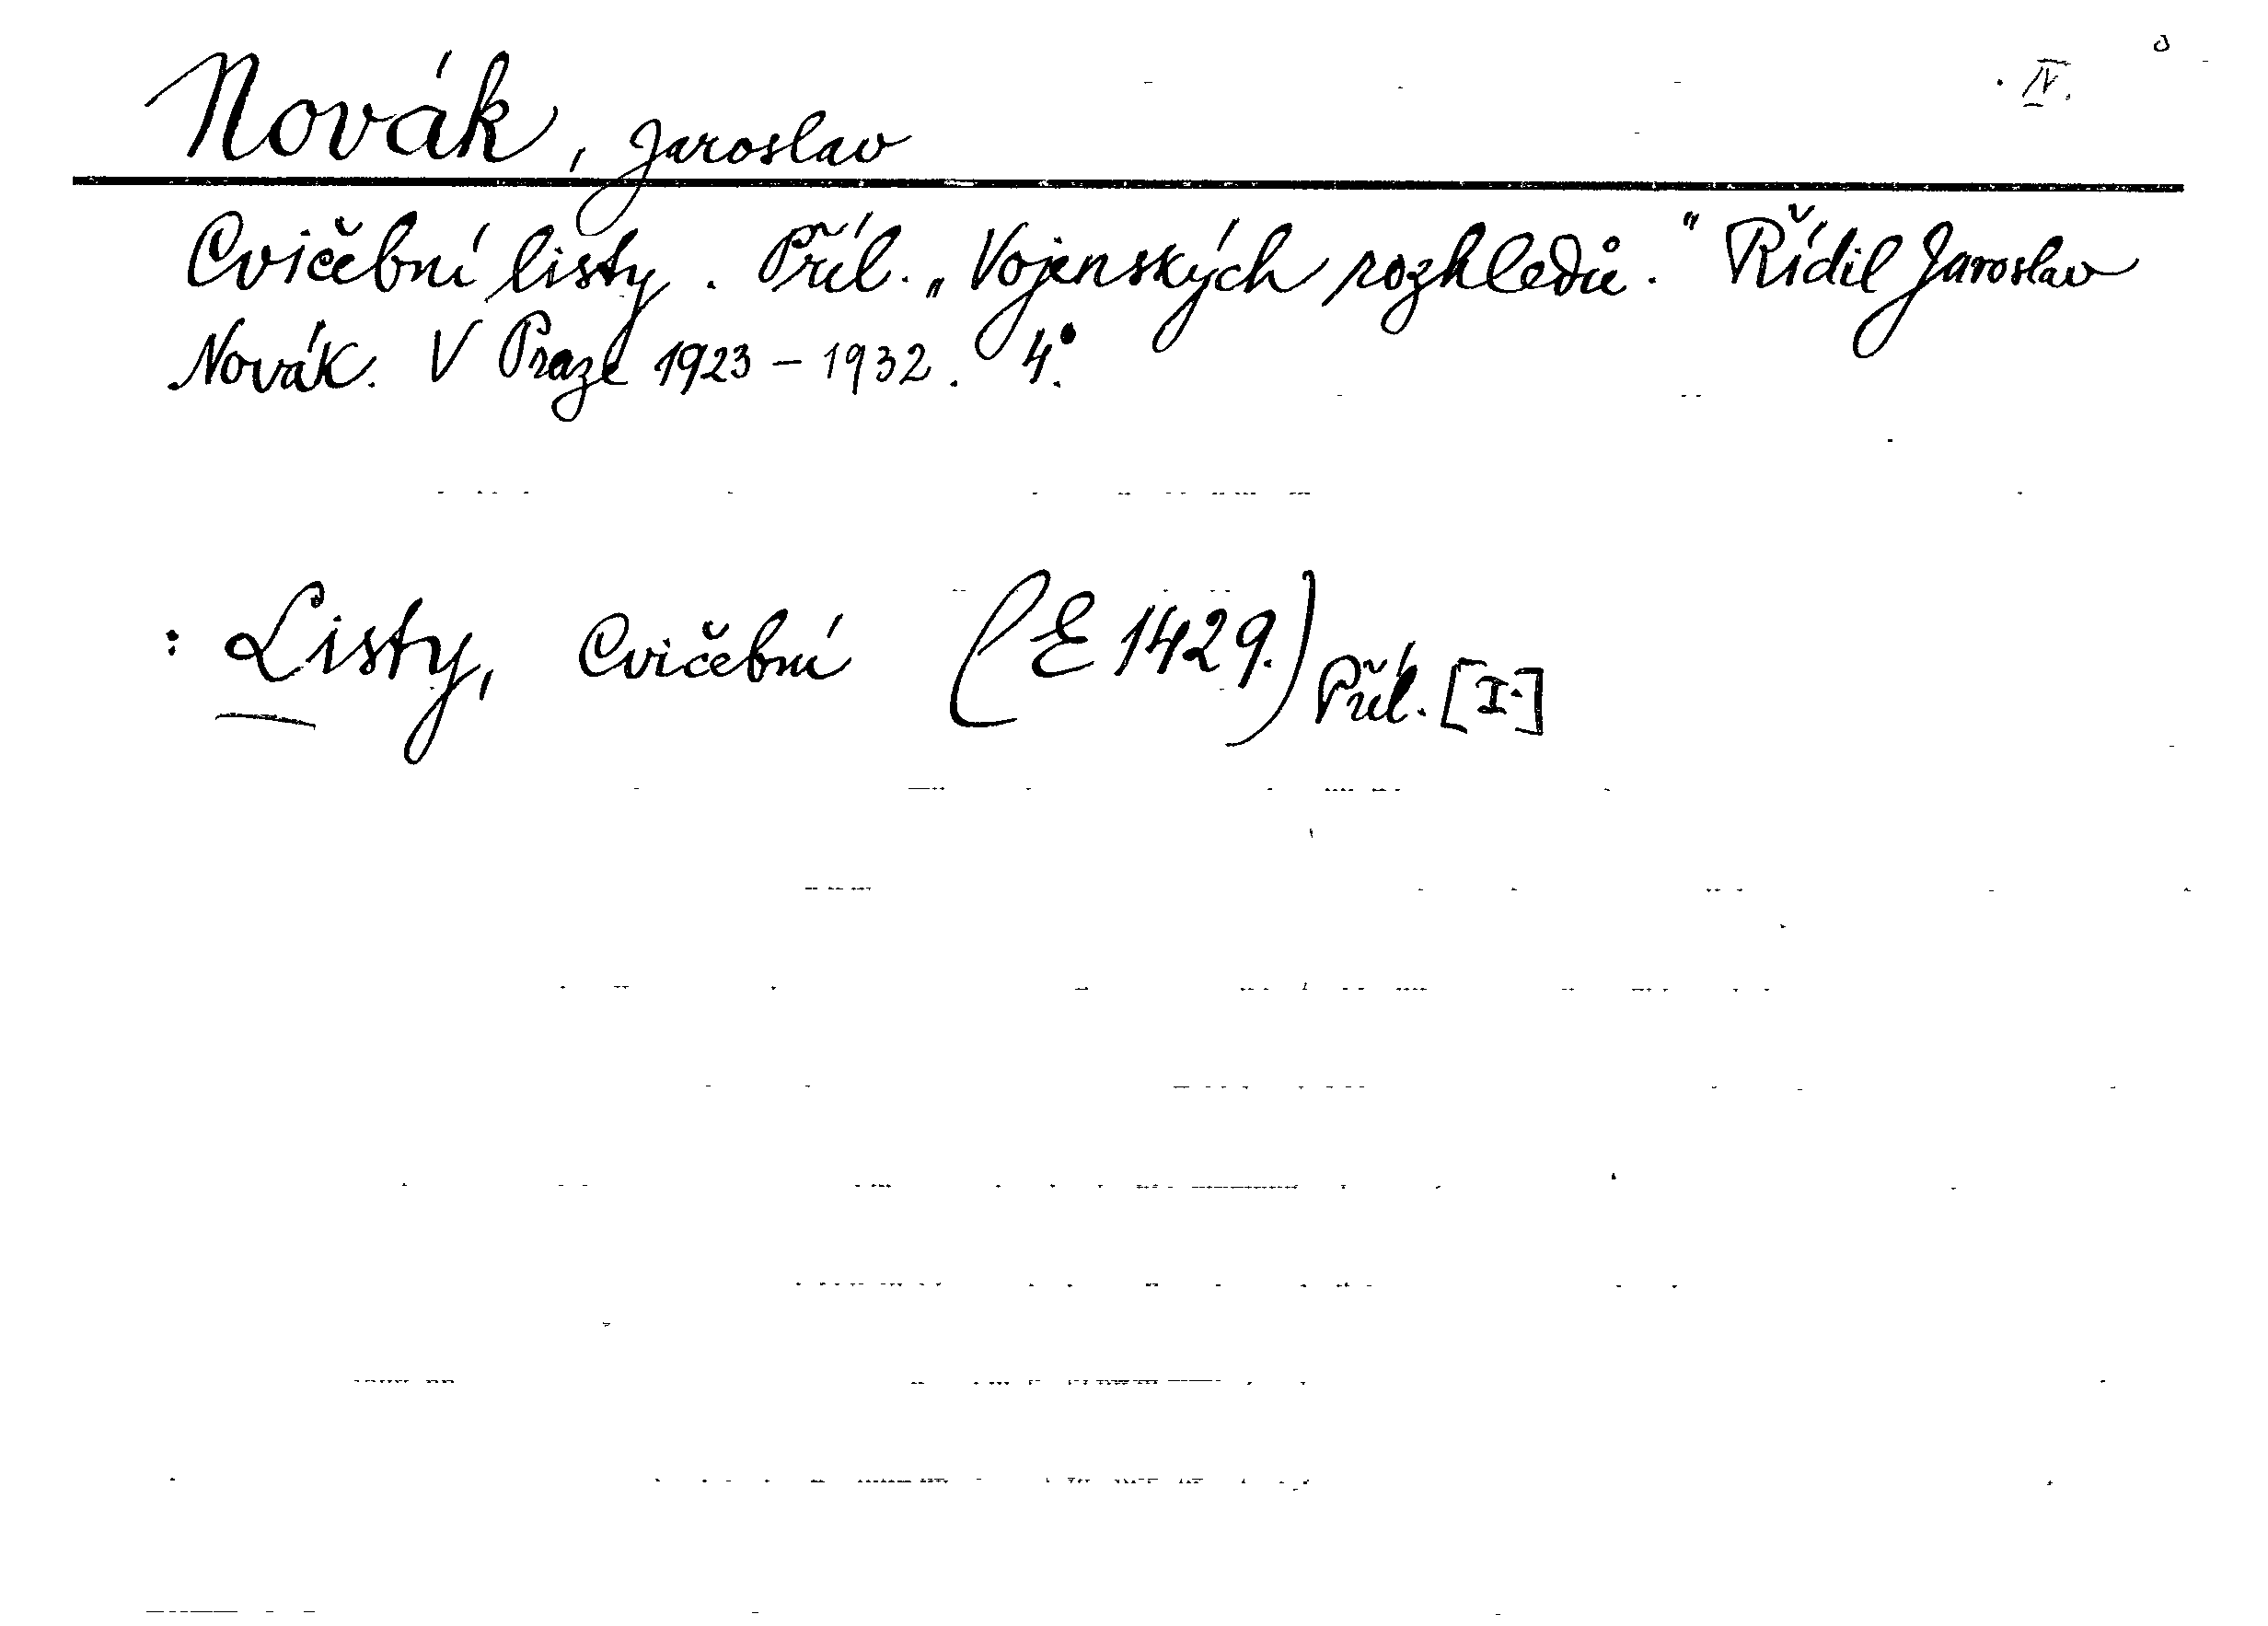 Novák, Jaroslav
IV.
Cvičební listy. Příl. „Vojenských rozhledů." Řídil Jaroslav
Novák. V Praze 1923 – 1932. 4°.
: Listy, Cvičební (E 1429.) Příl. [I.]